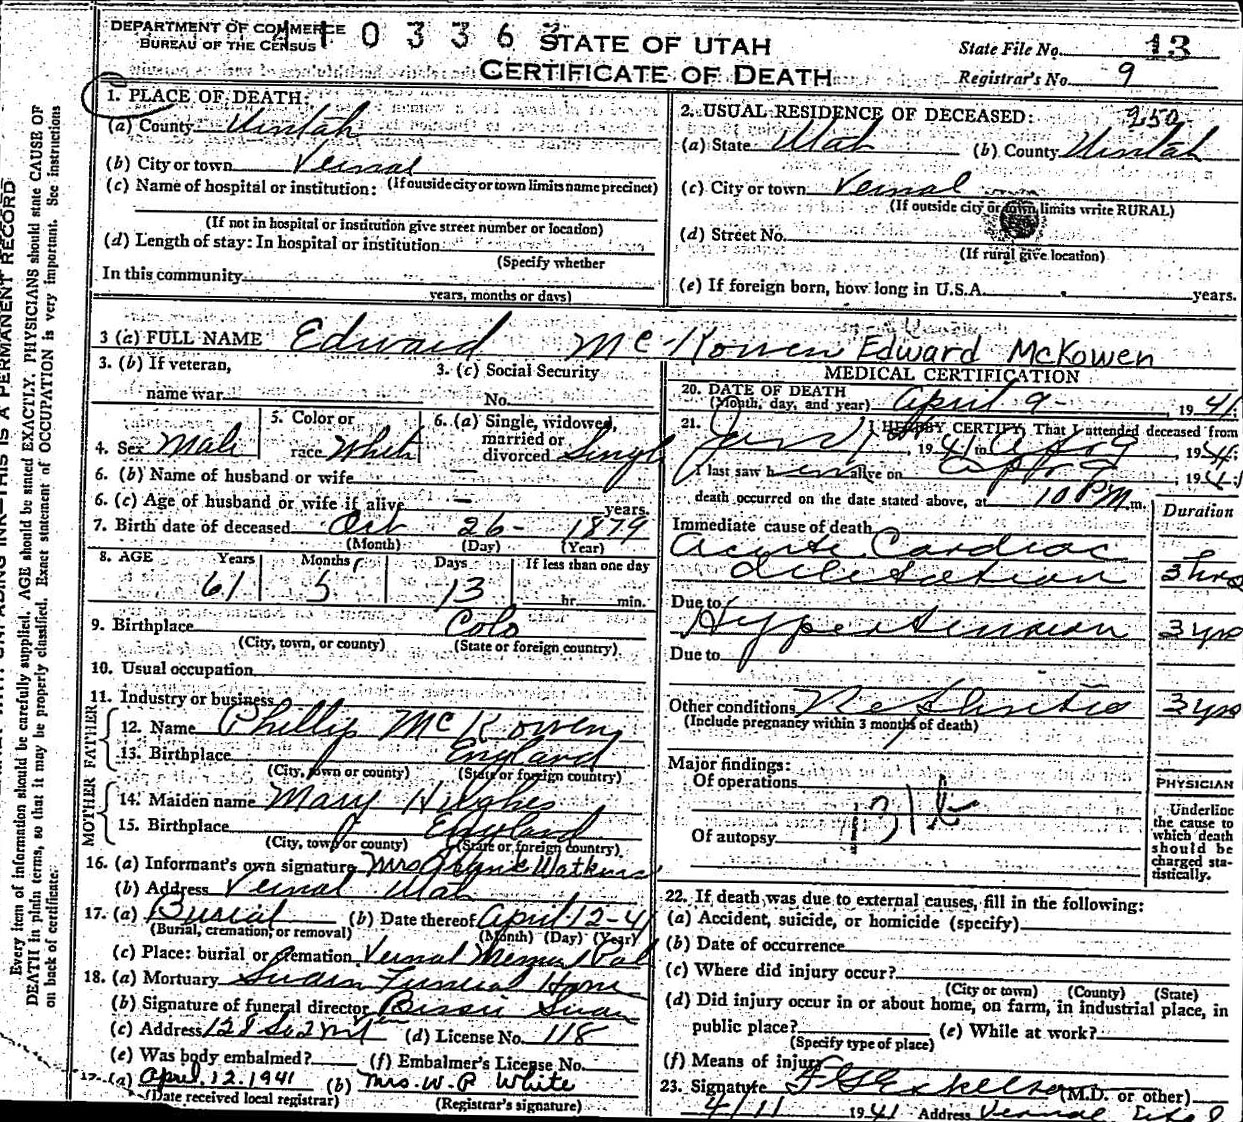 DEPARTMENT OF COMMERCE
BUREAU OF THE CENSUS
0 3 3 6
STATE OF UTAH
CERTIFICATE OF DEATH
State File No. 13
Registrar's No. 9
1. PLACE OF DEATH:
(a) County Uintah
(b) City or town Vernal
(c) Name of hospital or institution: (If outside city or town limits name precinct)
(If not in hospital or institution give street number or location)
(d) Length of stay: In hospital or institution
(Specify whether
In this community
years, months or days)
2. USUAL RESIDENCE OF DECEASED: 250
(a) State Utah (b) County Uintah
(c) City or town Vernal
(If outside city or town limits write RURAL)
(d) Street No.
(If rural give location)
(e) If foreign born, how long in U.S.A. years.
3 (a) FULL NAME Edward Mc Kowen Edward McKowen
3. (b) If veteran,
name war
3. (c) Social Security
No.
4. Sex Male
5. Color or
race White
6. (a) Single, widowed,
married or
divorced Single
6. (b) Name of husband or wife —
6. (c) Age of husband or wife if alive — years.
7. Birth date of deceased Oct 26- 1879
(Month) (Day) (Year)
8. AGE Years Months Days If less than one day
61 5 13 hr. min.
9. Birthplace Colo
(City, town, or county) (State or foreign country)
10. Usual occupation
11. Industry or business
FATHER
12. Name Phillip McKowen
13. Birthplace England
(City, town or county) (State or foreign country)
MOTHER
14. Maiden name Mary Hughes
15. Birthplace England
(City, town or county) (State or foreign country)
16. (a) Informant's own signature Mrs Watkins
(b) Address Vernal Utah
17. (a) Burial (b) Date thereof April-12-41
(Burial, cremation, or removal) (Month) (Day) (Year)
(c) Place: burial or cremation Vernal
18. (a) Mortuary Swain Funeral Home
(b) Signature of funeral director Swain
(c) Address 128 So 2nd (d) License No. 118
(e) Was body embalmed? (f) Embalmer's License No.
(a) April. 12. 1941 (b) Mrs. W. P. White
(Date received local registrar) (Registrar's signature)
MEDICAL CERTIFICATION
20. DATE OF DEATH
(Month, day, and year) April 9- , 1941;
21. I HEREBY CERTIFY, That I attended deceased from
Jan 1, 1941 to Apr 9, 1941;
I last saw him alive on Apr 9, 1941;
death occurred on the date stated above, at 10 PM m.
Duration
Immediate cause of death
Acute Cardiac
dilitation 3 hrs
Due to
Hypertension 3 yrs
Due to
Other conditions Nephritis 3 yrs
(Include pregnancy within 3 months of death)
Major findings:
Of operations
131b
Of autopsy
PHYSICIAN
Underline
the cause to
which death
should be
charged sta-
tistically.
22. If death was due to external causes, fill in the following:
(a) Accident, suicide, or homicide (specify)
(b) Date of occurrence
(c) Where did injury occur?
(City or town) (County) (State)
(d) Did injury occur in or about home, on farm, in industrial place, in
public place? (e) While at work?
(Specify type of place)
(f) Means of injury
23. Signature (M.D. or other)
4/11 1941 Address Vernal
Every item of information should be carefully supplied. AGE should be stated EXACTLY. PHYSICIANS should state CAUSE OF
DEATH in plain terms, so that it may be properly classified. Exact statement of OCCUPATION is very important. See instructions
on back of certificate.
INK—THIS IS A PERMANENT RECORD